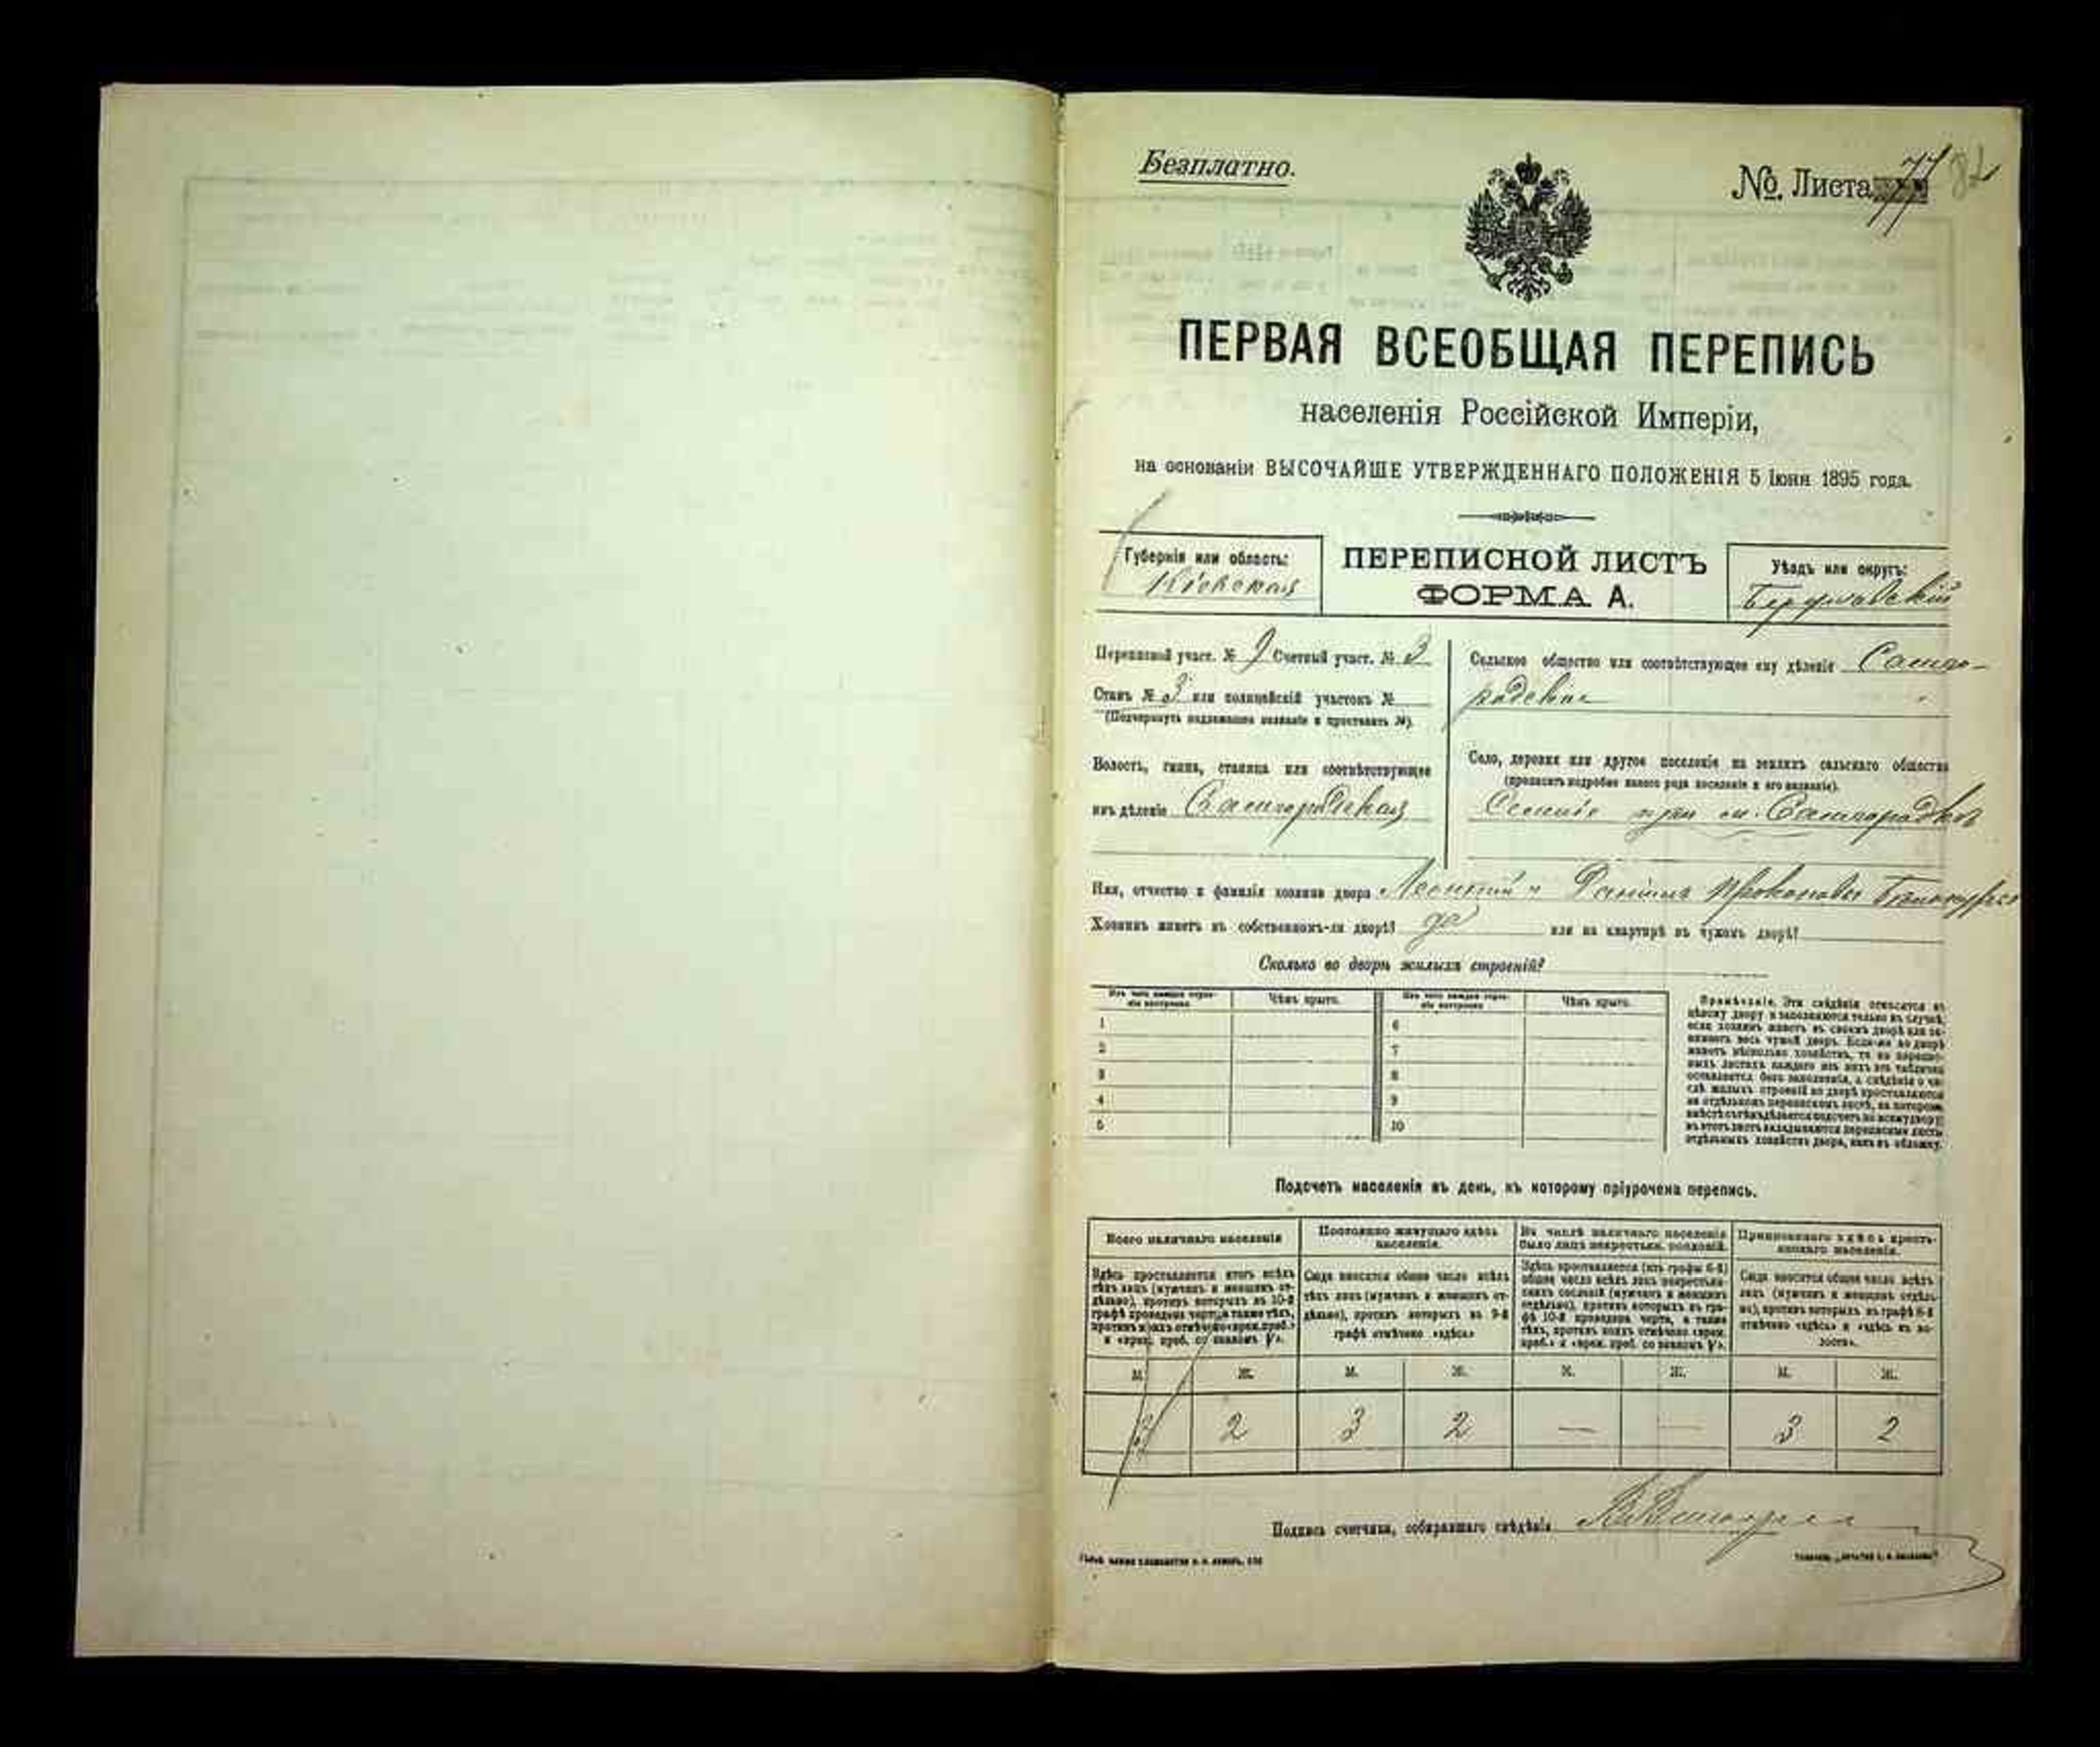 Безплатно.
№ Листа 77 82
ПЕРВАЯ ВСЕОБЩАЯ ПЕРЕПИСЬ
населенія Россійской Имперіи,
на основаніи ВЫСОЧАЙШЕ УТВЕРЖДЕННАГО ПОЛОЖЕНІЯ 5 Іюня 1895 года.
Губернія или область:
Кіевская
ПЕРЕПИСНОЙ ЛИСТЪ
ФОРМА А.
Уѣздъ или округъ:
Бердичевскій
Переписной участ. № 9 Счетный участ. № 3
Станъ № 3 или полицейскій участокъ №
(Подчеркнуть надлежащее названіе и проставить №).
Волость, гмина, станица или соотвѣтствующее
имъ дѣленіе Самгородская
Сельское общество или соотвѣтствующее ему дѣленіе Самго-
родское
Село, деревня или другое поселеніе на земляхъ сельскаго общества
(прописать подробно какого рода поселеніе и его названіе).
при м. Самгородкѣ
Имя, отчество и фамилія хозяина двора Леонтій и Даніилъ Прокоповы
Хозяинъ живетъ въ собственномъ-ли дворѣ? да или на квартирѣ въ чужомъ дворѣ?
Сколько во дворѣ жилыхъ строеній?
Изъ чего каждое строе-
ніе построено
Чѣмъ крыто.
Изъ чего каждое строе-
ніе построено
Чѣмъ крыто.
1 6
2 7
3 8
4 9
5 10
Примѣчаніе. Эти свѣдѣнія относятся къ
цѣлому двору и заполняются только въ случаѣ,
если хозяинъ живетъ въ своемъ дворѣ или за-
нимаетъ весь чужой дворъ. Если-же во дворѣ
живетъ нѣсколько хозяйствъ, то на перепис-
ныхъ листахъ каждаго изъ нихъ эта табличка
оставляется безъ заполненія, а свѣдѣнія о чи-
слѣ жилыхъ строеній во дворѣ проставляются
на отдѣльномъ переписномъ листѣ, на которомъ
вмѣстѣ съ тѣмъ дѣлается подсчетъ по всему двору;
въ этотъ листъ вкладываются переписные листы
отдѣльныхъ хозяйствъ двора, какъ въ обложку.
Подсчетъ населенія въ день, къ которому пріурочена перепись.
Всего наличнаго населенія
Постоянно живущаго здѣсь
населенія.
Въ числѣ наличнаго населенія
было лицъ некрестьян. сословій.
Приписаннаго здѣсь кресть-
янскаго населенія.
Здѣсь проставляется итогъ всѣхъ
тѣхъ лицъ (мужчинъ и женщинъ от-
дѣльно), противъ которыхъ въ 10-й
графѣ проведена черта, а также тѣхъ,
противъ коихъ отмѣчено «врем. преб.»
и «врем. преб. со знакомъ V».
Сюда вносится общее число всѣхъ
тѣхъ лицъ (мужчинъ и женщинъ от-
дѣльно), противъ которыхъ въ 9-й
графѣ отмѣчено «здѣсь»
Здѣсь проставляется (изъ графы 6-й)
общее число всѣхъ лицъ некрестьян-
скихъ сословій (мужчинъ и женщинъ
отдѣльно), противъ которыхъ въ гра-
фѣ 10-й проведена черта, а также
тѣхъ, противъ коихъ отмѣчено «врем.
преб.» и «врем. преб. со знакомъ V».
Сюда вносится общее число всѣхъ
лицъ (мужчинъ и женщинъ отдѣль-
но), противъ которыхъ въ графѣ 8-й
отмѣчено «здѣсь» и «здѣсь въ во-
лости».
М. Ж. М. Ж. М. Ж. М. Ж.
3 2 3 2 — — 3 2
Подпись счетчика, собиравшаго свѣдѣнія